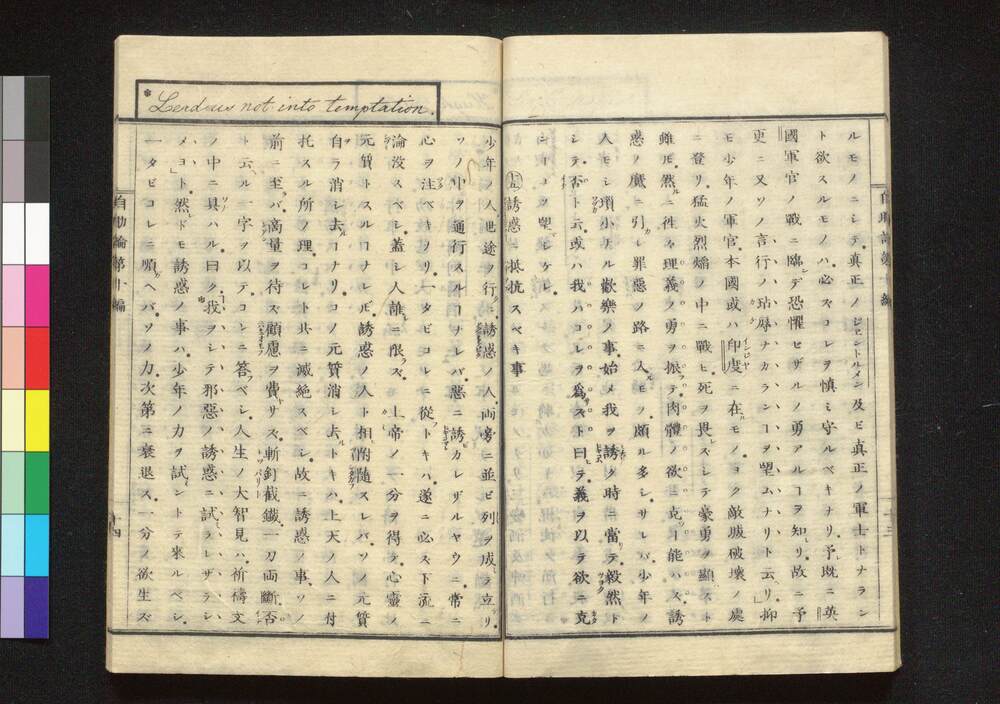 自助論第十編
十三
ルモノニシテ真正ノジェントルメン及ビ真正ノ軍士トナラン
ト欲スルモノハ必スコレヲ慎ミ守ルベキナリ予既ニ英
國軍官ノ戰ニ臨デ恐懼セザルノ勇アルヿヲ知リ故ニ予
更ニ又ソノ言行ノ玷辱ナカランヿヲ望ムナリト云」抑
モ少年ノ軍官本國或ハ印度ニ在ルモノヨク敵城破壊ノ處
ニ登リ猛火烈熖ノ中ニ戰ヒ死ヲ畏レズシテ豪勇ヲ顯スト
雖𪜈然ルニ徃々理義ノ勇ヲ振テ肉體ノ欲ニ克ツヿ能ハズ誘
惑ノ魔ニ引カレ罪惡ノ路ニ入ルモノ頗ル多シサレバ少年ノ
人モシ瑣小ナル歡樂ノ事始メ我ヲ誘ク時ニ當リテ毅然ト
シテ否ト云ヒ或ハ我ハコレヲ爲サズト曰テ義ヲ以テ欲ニ克
ンヿヲ望ベケレ
十五 誘惑ヲ抵抗スベキ事
* Lead us not into temptation.
少年ノ人世途ヲ行クニ誘惑ノ人両旁ニ並ビ列ヲ成シテ立リ
ソノ中ヲ通行スルヿヲナレバ惡ニ誘カレザルヤウニ常ニ
心ヲ注ベキヿナリ一タビコレニ從フトキハ遂ニ必ス下流ニ
淪没スベシ蓋シ人誰ニ限ラズ上帝ノ一分ヲ得テ心靈ノ
元質トスルヿナレ𪜈誘惑ノ人ト相附随スレバソノ元質
自ラ消シ去ルヿナリコノ元質消シ去ルトキハ上天ノ人ニ付
托スル所ノ理コレト共ニ滅絶スベシ故ニ誘惑ノ事ソノ
前ニ至ラバ商量ヲ待ズ顧慮ヲ費サズ斬釘截鐵一刀両斷否
ト云ル一字ヲ以テコレニ答フベシ人生ノ大智見ハ祈禱文
ノ中ニ具ハル曰ク*我ヲシテ邪惡ノ誘惑ニ試ラレザラシ
メヨト然レドモ誘惑ノ事ハ少年ノ力ヲ試ントテ來ルベシ
一タビコレニ順ヘバソノ力次第ニ衰退ス一分ノ欲生ズ
自助論第十編
十四